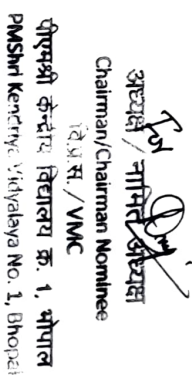 अध्यक्ष / नामित अध्यक्ष
Chairman/Chairman Nominee
वि.प्र.स. / VMC
पीएमश्री केन्द्रीय विद्यालय क्र. 1, भोपाल
PMShri Kendriya Vidyalaya No. 1, Bhopal